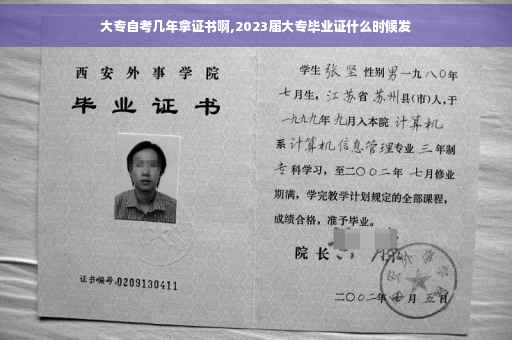 大专自考几年拿证书啊,2023届大专毕业证什么时候发
西安外事学院
毕业证书
证书编号:0209130411
学生 张坚 性别 男 一九八〇年
七月生，江苏省 苏州 县(市)人，于
一九九九年 九月入本院 计算机
系 计算机信息管理专业 三 年制
专 科学习，至二〇〇二年 七月修业
期满，学完教学计划规定的全部课程，
成绩合格，准予毕业。
院长
二〇〇二年 月 五日